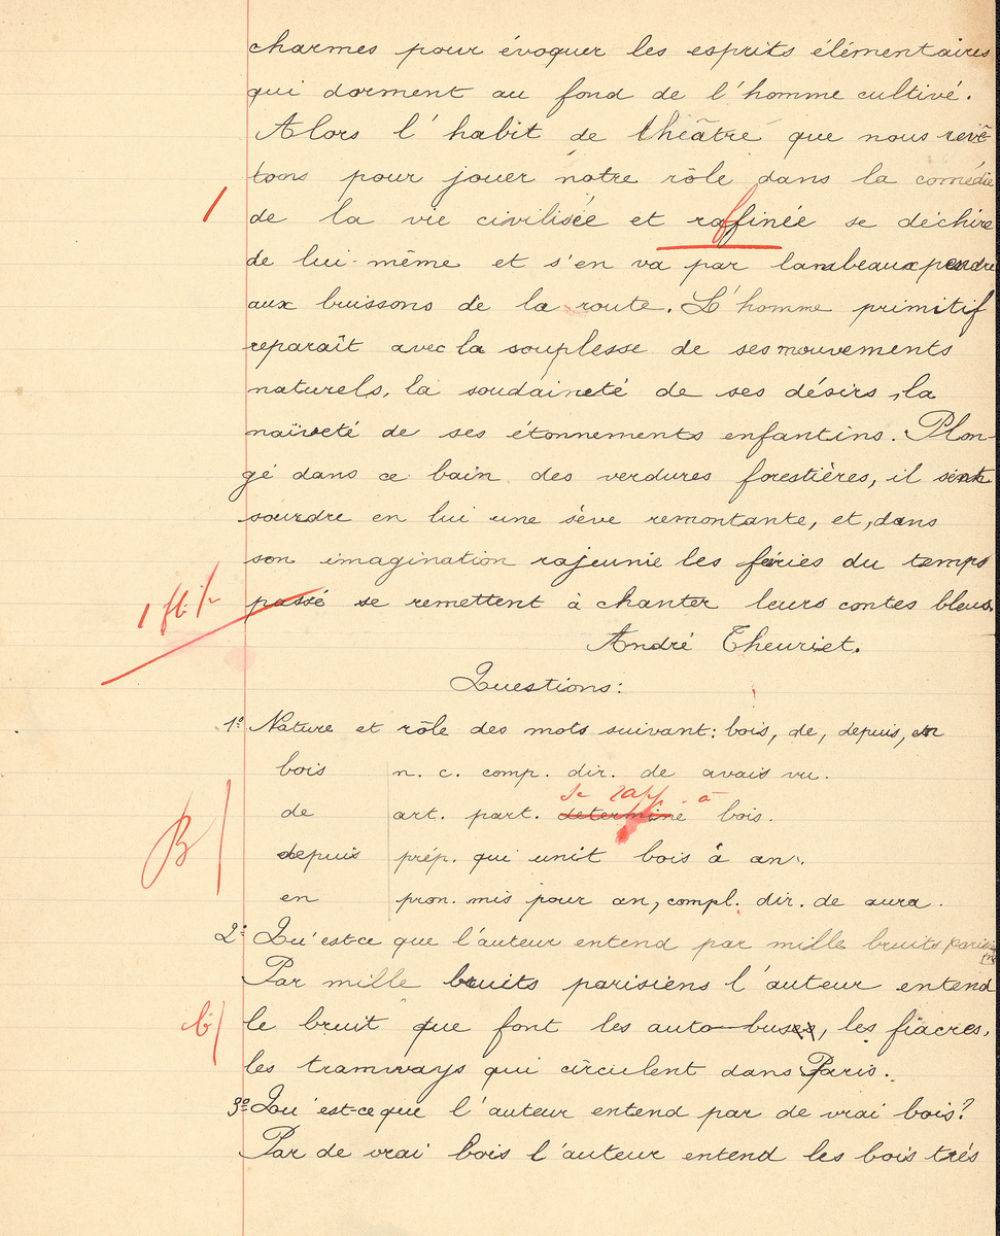 charmes pour évoquer les esprits élémentaires
qui dorment au fond de l'homme cultivé.
Alors l'habit de théâtre que nous revê-
tons pour jouer notre rôle dans la comédie
de la vie civilisée et raffinée se déchire
de lui-même et s'en va par lambeaux pendre
aux buissons de la route. L'homme primitif
reparaît avec la souplesse de ses mouvements
naturels, la soudaineté de ses désirs, la
naïveté de ses étonnements enfantins. Plon-
gé dans ce bain des verdures forestières, il sent
sourdre en lui une sève remontante, et, dans
son imagination rajeunie les féeries du temps
passé se remettent à chanter leurs contes bleus.
André Theuriet.
Questions:
1º Nature et rôle des mots suivant: bois, de, depuis, en
bois n. c. comp. dir. de avais vu.
se rapp à
de art. part. determine bois.
depuis prép. qui unit bois à an.
B
en pron. mis pour an, compl. dir. de aura.
2º Qu'est-ce que l'auteur entend par mille bruits parisiens
Par mille bruits parisiens l'auteur entend
b
le bruit que font les auto-buses, les fiacres,
les tramways qui circulent dans Paris.
3º Qu'est-ce que l'auteur entend par de vrai bois?
Par de vrai bois l'auteur entend les bois trés